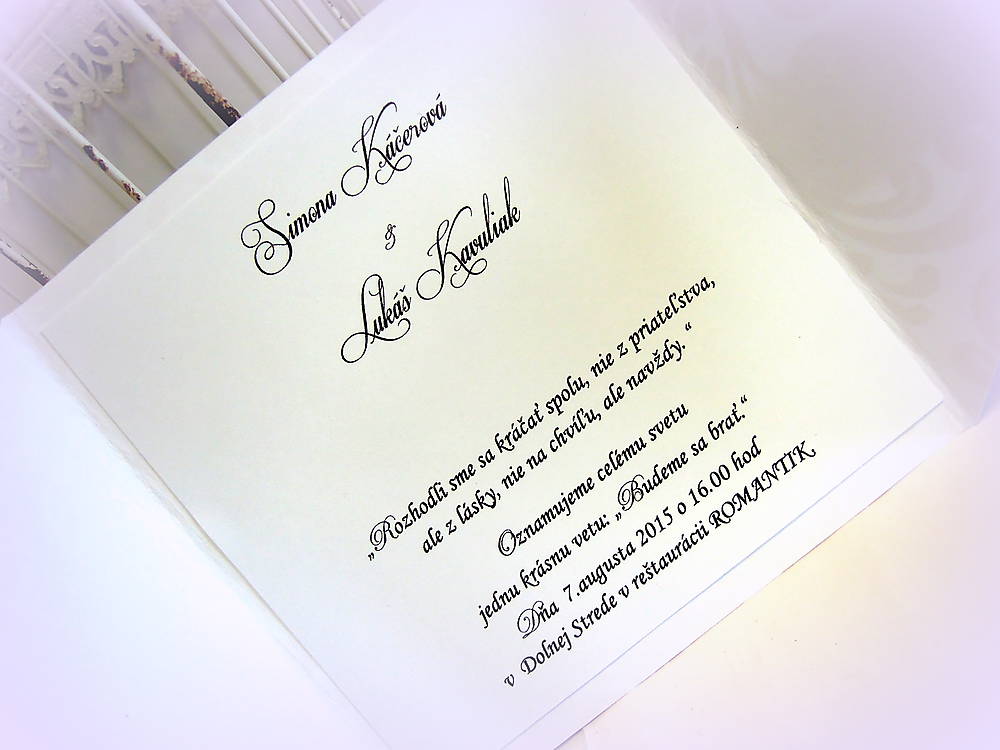 Simona Káčerová
&
Lukáš Kavuliak
„Rozhodli sme sa kráčať spolu, nie z priateľstva,
ale z lásky, nie na chvíľu, ale navždy.“
Oznamujeme celému svetu
jednu krásnu vetu: „Budeme sa brať.“
Dňa 7.augusta 2015 o 16.00 hod
v Dolnej Strede v reštaurácii ROMANTIK.